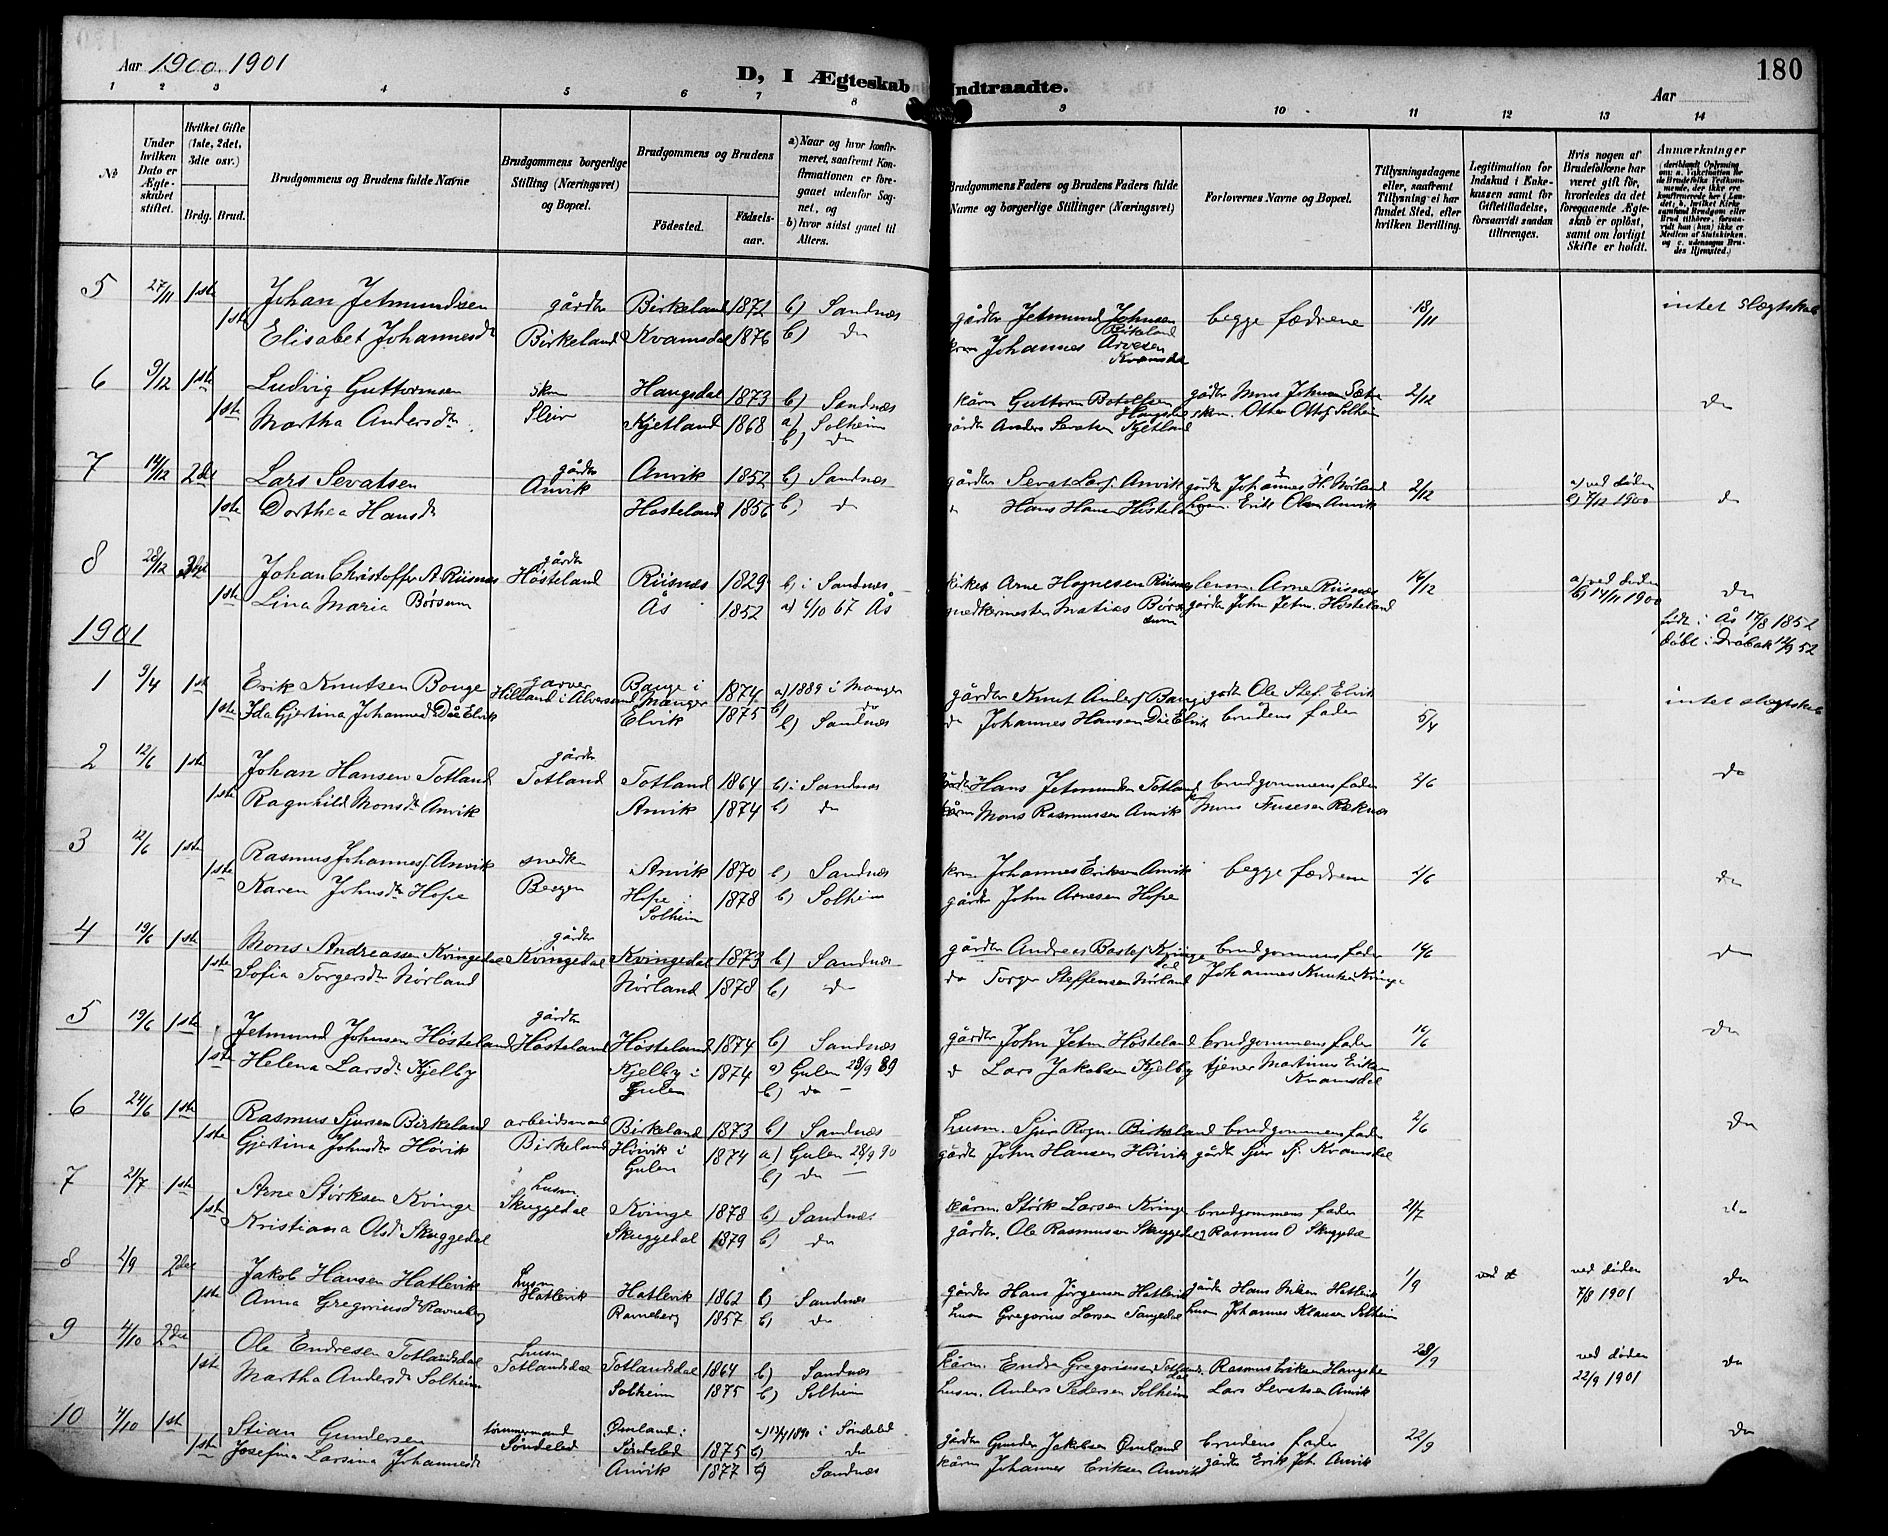 Aar 1900. 1901
D, I Ægteskab Indtraadte.
180
Aar
1 2 3 4 5 6 7 8 9 10 11 12 13 14
№
Under hvilken Dato er Ægteskabet stiftet.
Hvilket Gifte (1ste, 2det, 3die osv.)
Brdg. Brud.
Brudgommens og Brudens fulde Navne
Brudgommens borgerlige Stilling (Næringsvei) og Bopæl.
Brudgommens og Brudens
Fødested. Fødselsaar.
a) Naar og hvor konfirmeret, saafremt Konfirmationen er foregaaet udenfor Sognet, og
b) hvor sidst gaaet til Alters.
Brudgommens Faders og Brudens Faders fulde Navne og borgerlige Stillinger (Næringsvei)
Forlovernes Navne og Bopæl.
Tillysningsdagene eller, saafremt Tillysning ei har fundet Sted, efter hvilken Bevilling.
Legitimation for Indskud i Enkekassen samt for Giftetilladelse, forsaavidt saadan tiltrænges.
Hvis nogen af Brudefolkene har været gift før, hvorledes da det foregaaende Ægteskab er opløst, samt om lovligt Skifte er holdt.
Anmærkninger
5 27/11 1ste Johan Jetmundsen gårdbr Birkeland 1872 b) Sandnæs gårdbr Jetmund Johnsen Birkeland begge fædrene 18/11 intet slægtskab
1ste Elisabet Johannesdr Birkeland Kvamsdal 1876 b) do Johannes Arvesen Kvamsdal
6 9/12 1ste Ludvig Guttormsen Haugsdal 1873 b) Sandnæs kårm Guttorm Botolfsen Haugsdal gårdbr Mons Johnsen Sætre 2/12 do
1ste Martha Andersdr Kjetland 1868 a) Solheim b) do gårdbr Anders Sevatsen Kjetland Otter Ottes. Solheim
7 14/12 2det Lars Sevatsen gårdbr Anvik 1852 b) Sandnæs gårdbr Sevat Lars. Anvik gårdbr Johannes H. Nørland 2/12 a) ved døden b) 7/12 1900 do
1ste Dorthea Hansdr Anvik Hosteland 1856 b) do do Hans Hansen Hosteland Erik Olsen Anvik
8 28/12 3dje Johan Christoffer A. Riisnæs gårdbr Riisnæs 1829 b) i Sandnæs Arne Hognesen Riisnæs Arne Riisnæs 16/12 a) ved døden b) 14/11 1900 do
1ste Lina Maria Børsum Høsteland Ås 1852 a) 6/10 67 Ås snedkermester Matias Børsum gårdbr John Jetm. Høsteland
født i Ås 17/8 1852
døbt i Drøbak 12/9 52
1901
1 9/4 1ste Erik Knutsen Bouge garver Bauge i Manger 1874 a) 1889 i Manger b) do gårdbr Knut Anders. Bauge gårdbr Ole Stef. Elvik 5/4 intet slægtskab
1ste Ida Gjertina Johannesd. Døe Elvik Hilland i Alversund Elvik 1875 b) Sandnæs do Johannes Hansen Døe Elvik brudens fader
2 12/6 1ste Johan Hansen Totland gårdbr Totland 1864 b) i Sandnæs gårdbr Hans Jetmundsen Totland brudgommens fader 2/6 do
1ste Ragnhild Monsdr Anvik Totland Anvik 1874 b) do kårm Mons Rasmussen Anvik Mons Knisesen Reknes
3 12/6 1ste Rasmus Johannes. Anvik snedker Anvik 1870 b) Sandnæs Johannes Eriksen Anvik begge fædrene 2/6 do
1ste Karen Johnsdr Hope Bergen Hope i Solheim 1878 b) Solheim gårdbr John Arnesen Hope
4 19/6 1ste Mons Andreassen Kvingedal gårdbr Kvingedal 1873 b) Sandnæs gårdbr Andreas Kvingedal brudgommens fader 16/6 do
1ste Sofia Torgersdr Nørland Kvingedal Nørland 1878 b) do do Torger Steffensen Nørland Johannes Knutsen Kvinge
5 19/6 1ste Jetmund Johnsen Høsteland gårdbr Høsteland 1874 b) Sandnæs gårdbr John Jetm Høsteland brudgommens fader 16/6 do
1ste Helena Larsdr Kjelby Høsteland Kjelby i Gulen 1874 a) Gulen 29/9 89 b) do Lars Jakobsen Kjelby tjener Martinus Eriksen Kvamsdal
6 24/6 1ste Rasmus Sjursen Birkeland arbeidsmand Birkeland 1873 b) Sandnæs husm. Sjur Rogn. Birkeland brudgommens fader 2/6 do
1ste Gjertina Johnsdr Høvik Birkeland Høivik i Gulen 1874 a) Gulen 28/9 90 b) do gårdbr John Hansen Høivik gårdbr Sjur Sj. Kvamsdal
7 21/7 1ste Arne Størksen Kvinge husm. Kvinge 1878 b) Sandnæs kårm. Størk Larsen Kvinge brudgommens fader 21/7 do
1ste Kristiana Olsd Skuggedal Skuggedal Skuggedal 1879 b) do gårdbr. Ole Rasmussen Skuggedal Rasmus O Skuggedal
8 2/9 2det Jakob Hansen Hatlevik husm Hatlevik 1862 b) Sandnæs gårdbr Hans Jørgensen Hatlevik gårdbr Hans Hatlevik 1/9 ved døden 7/8 1901 do
1ste Anna Gregoriusd. Ravneberg Hatlevik Ravneberg 1857 b) do husm Gregorius Larsen Tangedal husm Johannes Klausen Solheim
9 4/10 2det Ole Endresen Totlandsdal husm Totlandsdal 1864 b) Sandnæs kårm. Endre Gregoriussen Totlandsdal Rasmus Eriksen Haugsdal 28/9 ved døden 22/9 1901 do
1ste Martha Andersdr Solheim Totlandsdal Solheim 1875 b) Solheim husm. Anders Pedersen Solheim Lars Sevatsen Anvik
10 4/10 1ste Stian Gundersen tømmermand Ømland i Søndeled 1875 a) 1890 i Søndeled b) do gårdbr Gunder Jakobsen Ømland brudens fader 22/9 do
1ste Josefina Larsina Johannesdr Søndeled Anvik 1877 b) Sandnæs kårm Johannes Eriksen Anvik gårdbr Erik Joh. Anvik